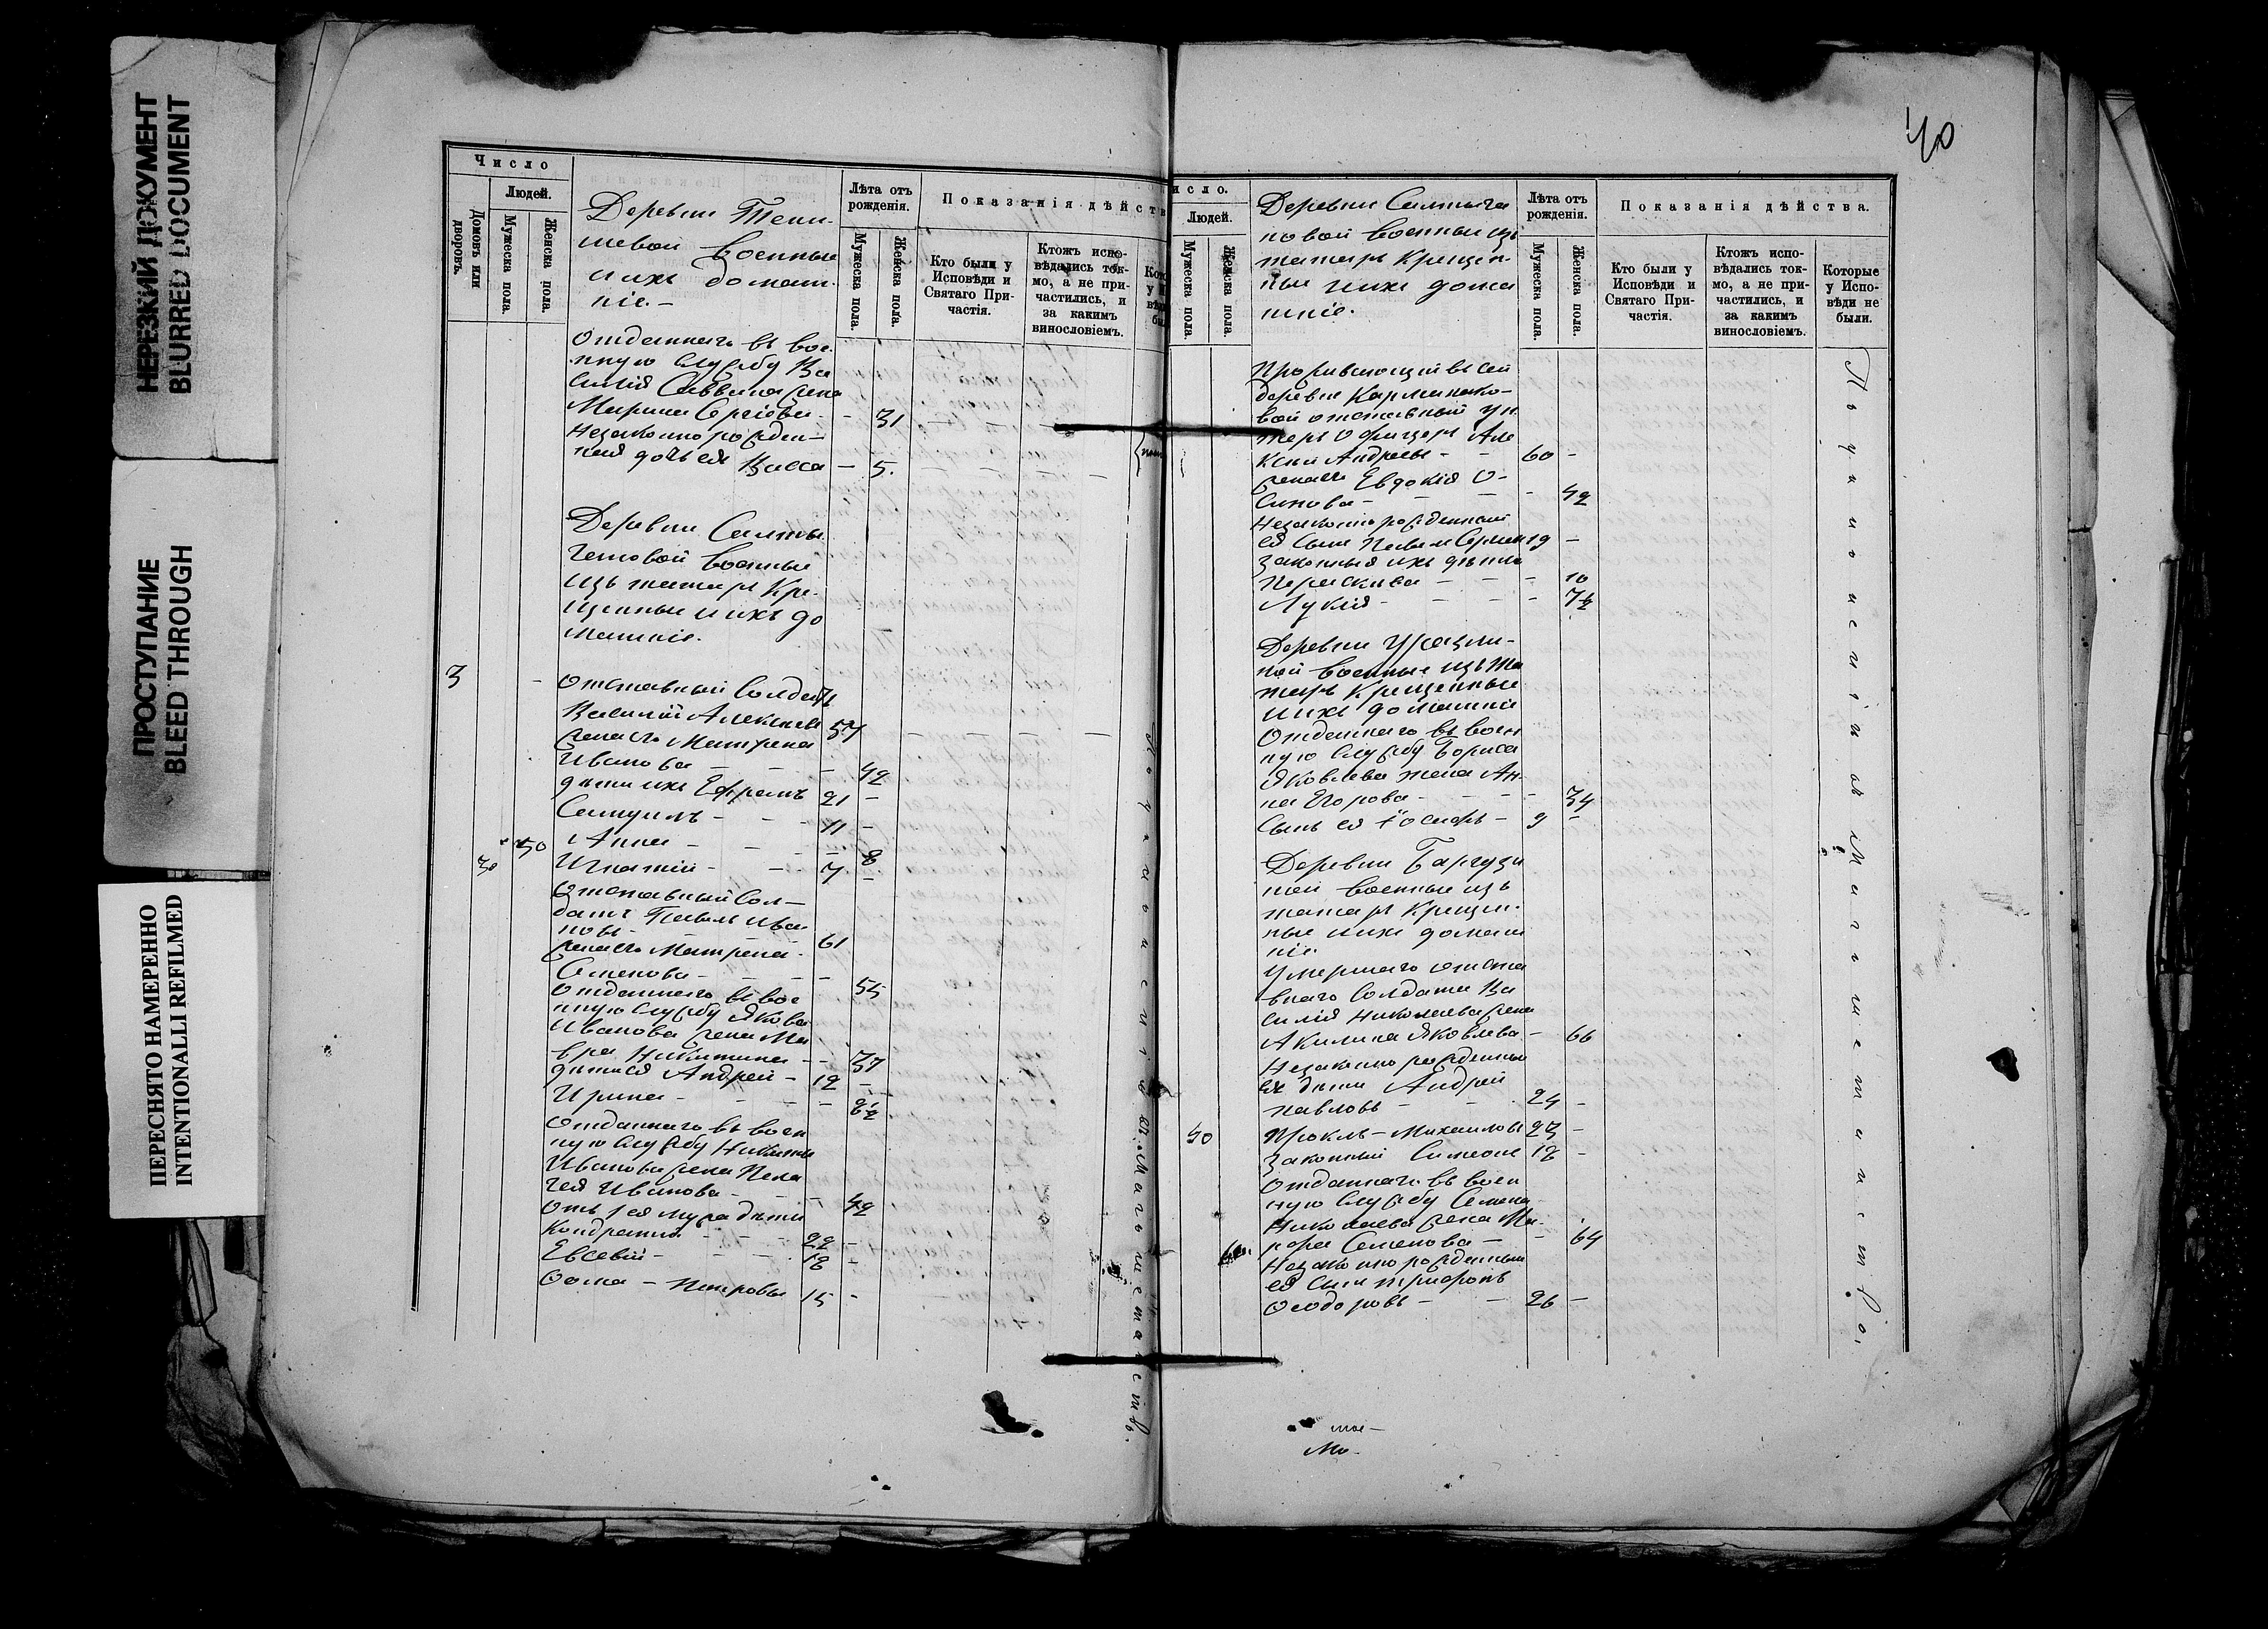 НЕРЕЗКИЙ ДОКУМЕНТ
BLURRED DOCUMENT
ПРОСТУПАНИЕ
BLEED THROUGH
ПЕРЕСНЯТО НАМЕРЕННО
INTENTIONALLI REFILMED
Число
Людей.
Домовъ или дворовъ.
Мужеска пола.
Женска пола.
Деревни
шевой военные
и ихъ домаш-
ніе.-
Лѣта отъ рожденія.
Мужеска пола.
Женска пола.
Показанія дѣйств
Кто были у Исповѣди и Святаго Причастія.
Ктожъ исповѣдались токмо, а не причастились, и за какимъ винословіемъ.
Отданнаго въ вое-
нную службу Ва
силія Саввина жена
Марина Сергіева - 31
Незаконнорожден-
ная дочь ея Васса - 5.
Деревни Салты
гановой военные
изъ татаръ кре-
щенные и ихъ до
машніе.
3
Отставный Солдатъ
Василій Алексѣевъ 57
жена его Матрена
Иванова - 42
дѣти ихъ Ефремъ 21 -
Самуилъ - 11 -
50 Анна - 8
30 Игнатій - 7 -
Отставный Сол-
датъ Павелъ Ива
новъ - 61
жена его Матрена
Семенова - 55
Отданнаго въ вое
нную службу Якова
Иванова жена Ма
вра Никитина - 37
дѣти ея Андрей - 12 -
Ирина -
Отданнаго въ воен
ную службу Никиты
Иванова жена Пела
гея Иванова - 42
отъ 1 ея мужа дѣти
Кондратій - 22 -
Евсевій - 18 -
Ѳома - Петровы 15 -
40
исло.
Людей.
Мужеска пола.
Женска пола.
Деревни
новой военные изъ
татаръ крещен-
ные и ихъ дома
шніе.
Лѣта отъ рожденія.
Мужеска пола.
Женска пола.
Показанія дѣйства.
Кто были у Исповѣди и Святаго Причастія.
Ктожъ исповѣдались токмо, а не причастились, и за какимъ винословіемъ.
Которые у Исповѣди не были.
Проживающій въ сей
деревнѣ
вой отставный ун
теръ Офицеръ Але
ксѣй Андреевъ - 60 -
жена его Евдокія О-
сипова - 42
Незаконнорожденный
ея сынъ Павелъ 19 -
законныя ихъ дѣти
Параскева - 10
Лукія - 7½
Деревни
ной военные изъ та
таръ крещенные
и ихъ домашніе
Отданнаго въ воен
ную службу Бориса
Яковлева жена Ан-
на Егорова - 34
Сынъ ея Іосифъ - 9 -
Деревни Баргузи
ной военные изъ
татаръ крещен-
ные и ихъ домаш
ніе.
Умершаго отста
внаго солдата Ва
силія Николаева жена
Акилина Яковлева - 66
Незаконнорожденные
ея дѣти Андрей
Павловъ - 24 -
40 Проклъ - Михаиловъ 23 -
законный Симеонъ 18 -
Отданнаго въ воен
ную службу Семена
Николаева жена
Семенова - 64
Незаконнорожденный
ея сынъ Трифонъ
Ѳеодоровъ - 26 -
По уклоненію въ Магометанство.
По уклоненію въ Магометанство.